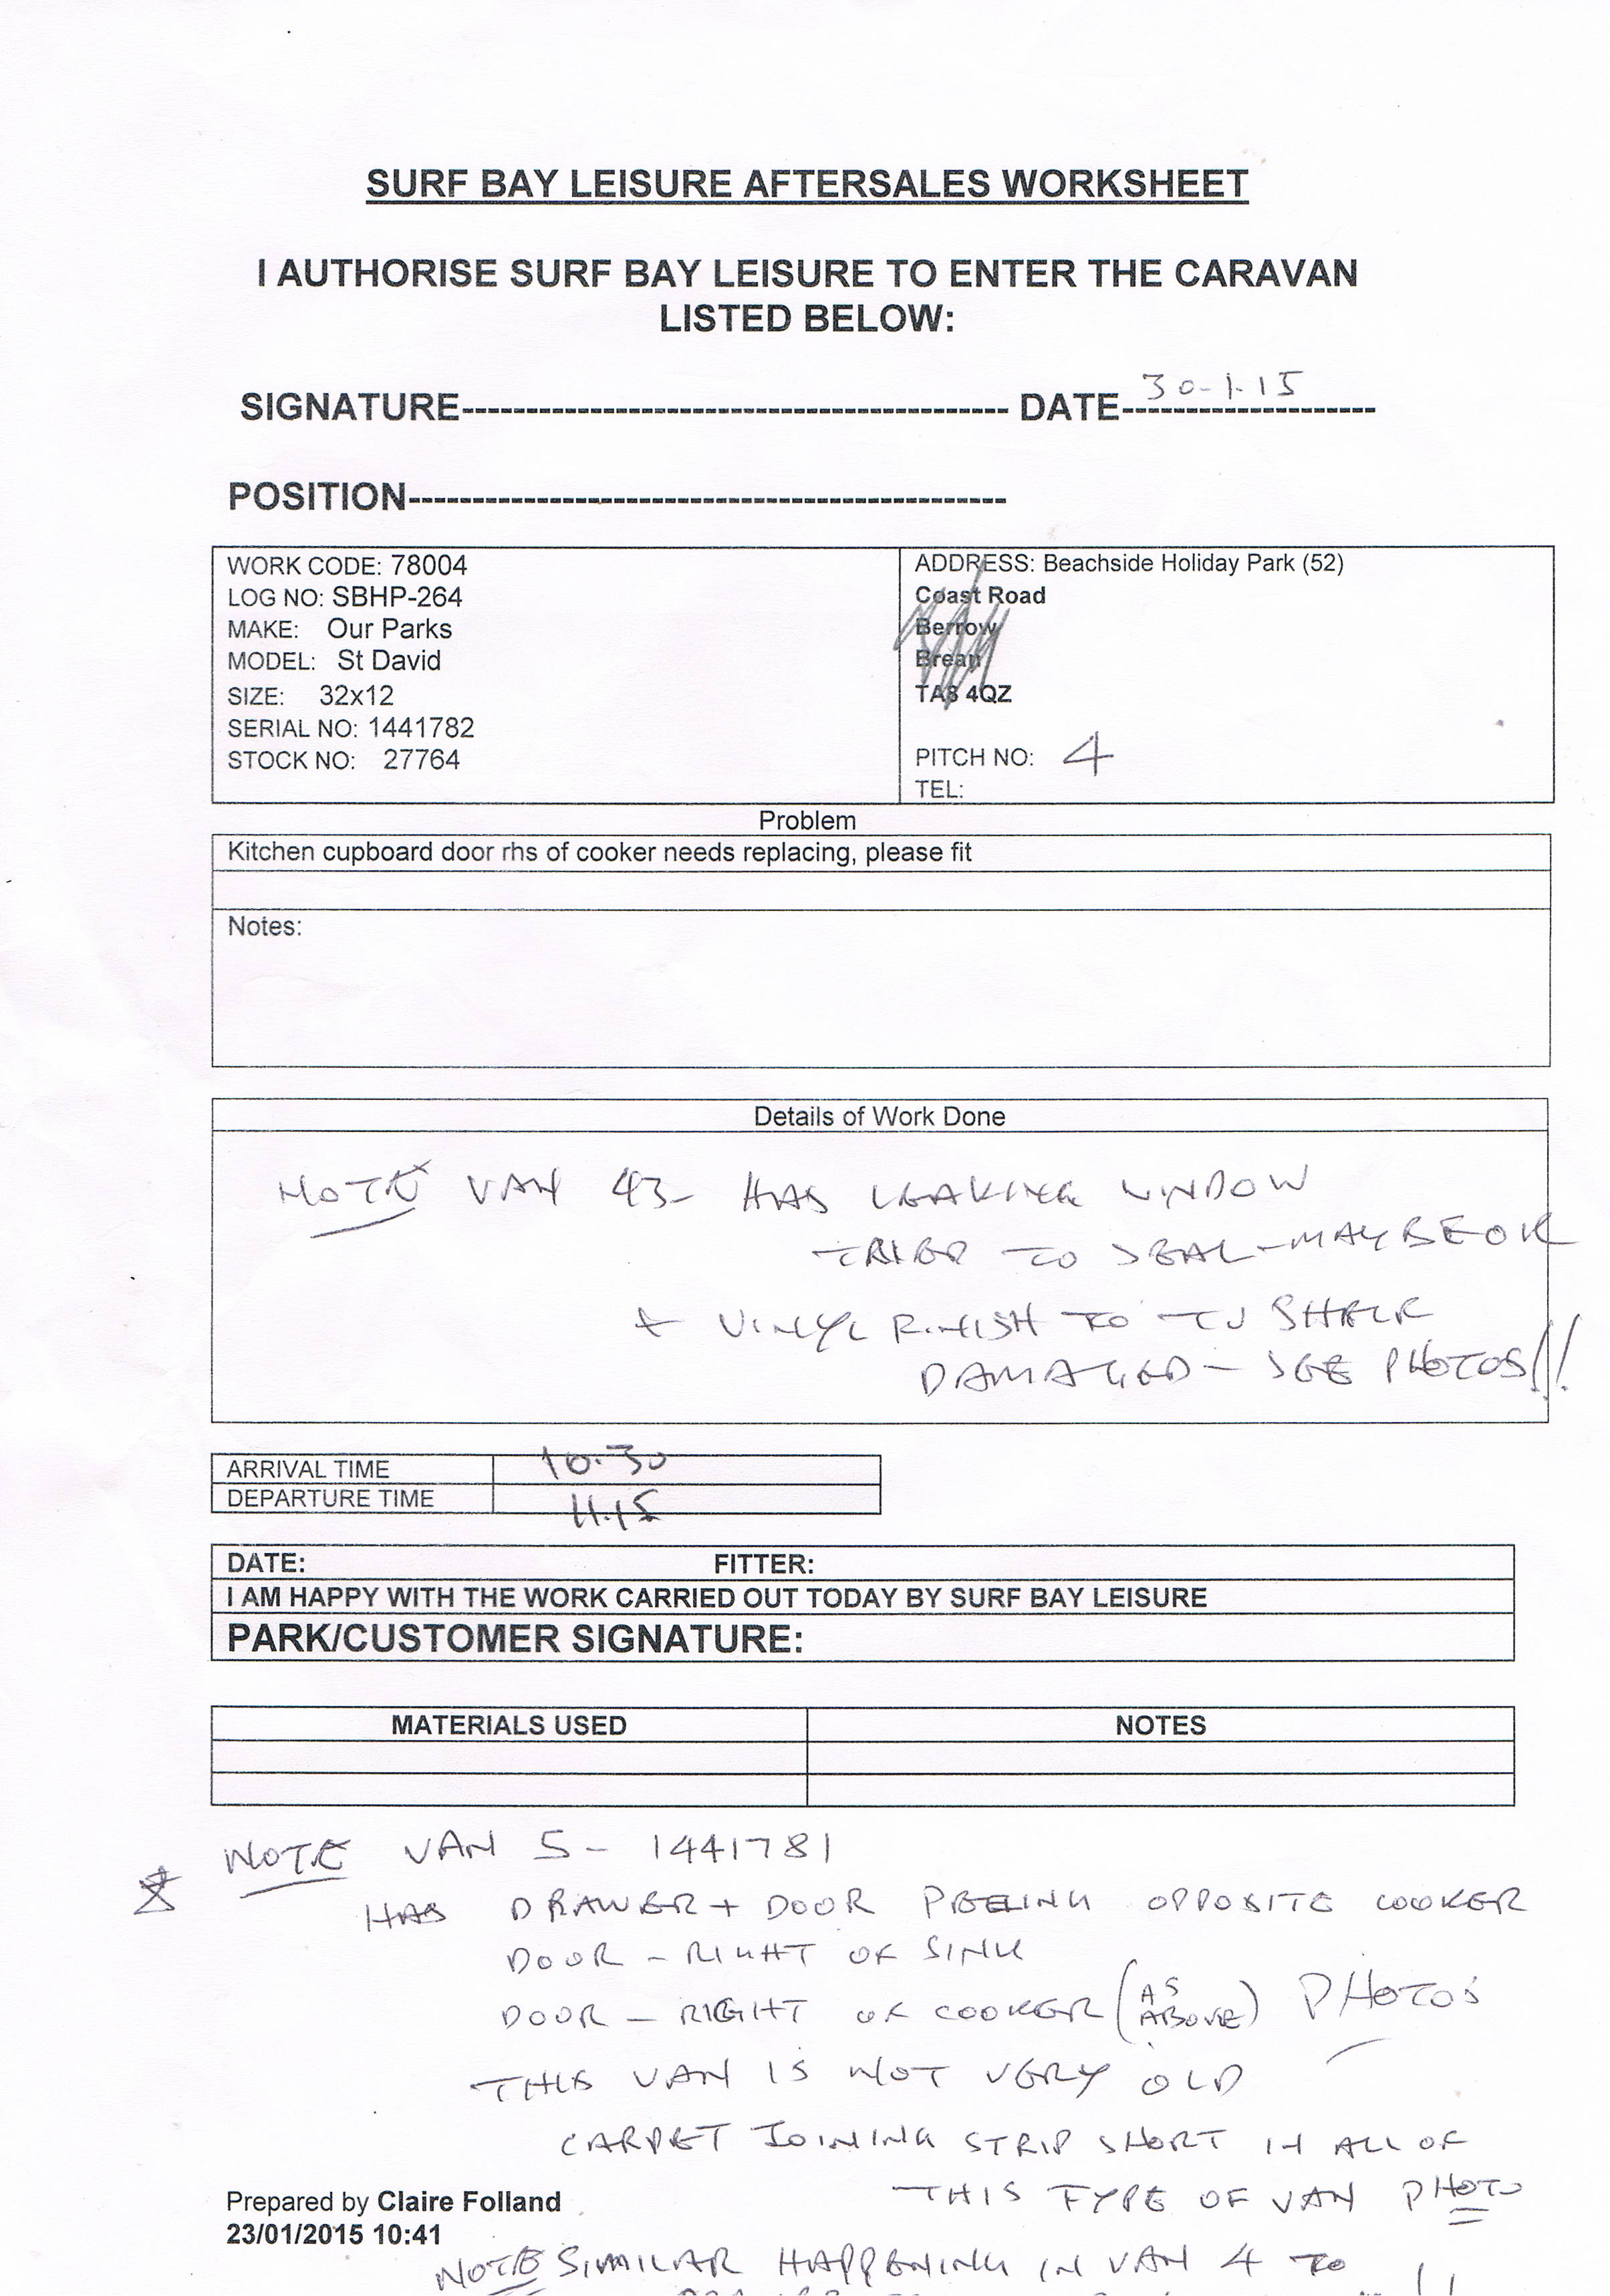 SURF BAY LEISURE AFTERSALES WORKSHEET
I AUTHORISE SURF BAY LEISURE TO ENTER THE CARAVAN
LISTED BELOW:
SIGNATURE------------------------------------------- DATE--------------------
30-1-15
POSITION-----------------------------------------------
WORK CODE: 78004
LOG NO: SBHP-264
MAKE: Our Parks
MODEL: St David
SIZE: 32x12
SERIAL NO: 1441782
STOCK NO: 27764
ADDRESS: Beachside Holiday Park (52)
Coast Road
Berrow
Brean
TA8 4QZ
PITCH NO: 4
TEL:
Problem
Kitchen cupboard door rhs of cooker needs replacing, please fit
Notes:
Details of Work Done
NOTE VAN 43- HAS LEAKING WINDOW
TRIED TO SEAL - MAYBE OK
+ VINYL FINISH TO TV SHELF
DAMAGED - SEE PHOTOS!!
ARRIVAL TIME 10.30
DEPARTURE TIME 11.15
DATE: FITTER:
I AM HAPPY WITH THE WORK CARRIED OUT TODAY BY SURF BAY LEISURE
PARK/CUSTOMER SIGNATURE:
MATERIALS USED NOTES
NOTE VAN 5 - 1441781
HAS DRAWER + DOOR PEELING OPPOSITE COOKER
DOOR - RIGHT OF SINK
DOOR - RIGHT OF COOKER (AS ABOVE) PHOTOS
THIS VAN IS NOT VERY OLD
CARPET JOINING STRIP SHORT IN ALL OF
THIS TYPE OF VAN PHOTO
Prepared by Claire Folland
23/01/2015 10:41
NOTE SIMILAR HAPPENING IN VAN 4 TO